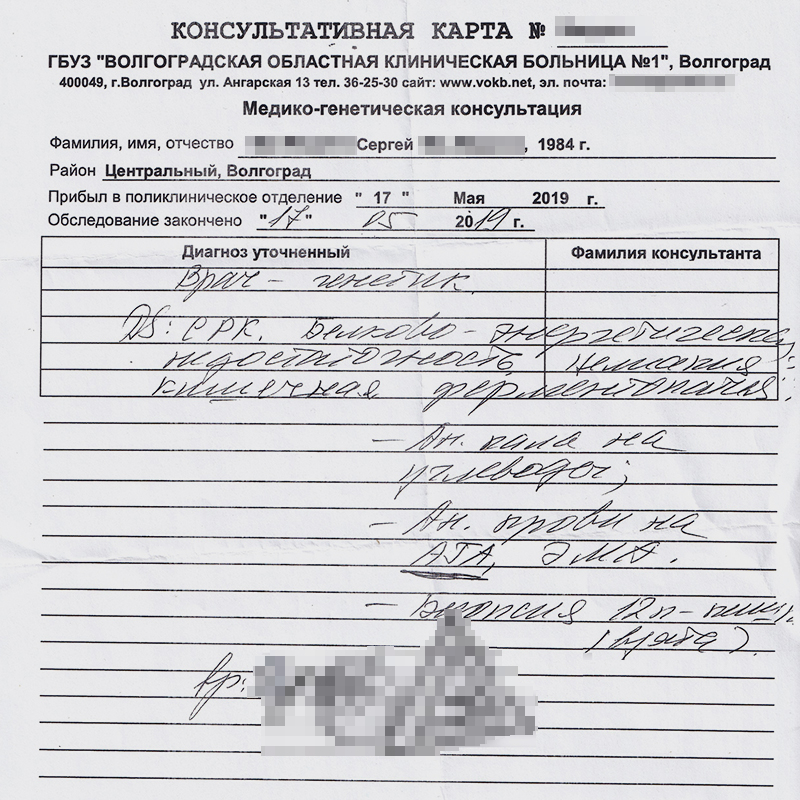 КОНСУЛЬТАТИВНАЯ КАРТА №
ГБУЗ "ВОЛГОГРАДСКАЯ ОБЛАСТНАЯ КЛИНИЧЕСКАЯ БОЛЬНИЦА №1", Волгоград
400049, г.Волгоград ул. Ангарская 13 тел. 36-25-30 сайт: www.vokb.net, эл. почта:
Медико-генетическая консультация
Фамилия, имя, отчество Сергей , 1984 г.
Район Центральный, Волгоград
Прибыл в поликлиническое отделение " 17 " Мая 2019 г.
Обследование закончено "17" 05 2019 г.
Диагноз уточненный Фамилия консультанта
Врач - генетик
DS: СРК. Белково-энергетическая
недостаточность целиакия
кишечная ферментопатия
- Ан. кала на
углеводы;
- Ан. крови на
АГА, ЭМА.
- Биопсия 12п-кишки
вр: